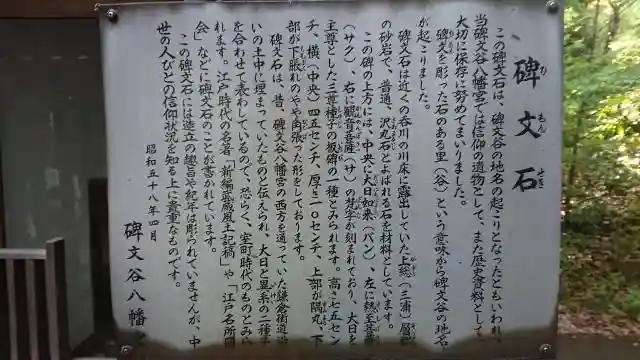 碑文石
この碑文石は、碑文谷の地名の起こりとなったともいわれ、
当碑文谷八幡宮では信仰の遺物として、また歴史資料として
大切に保存に努めてまいりました。
碑文を彫った石のある里（谷）という意味から碑文谷の地名
が起こりました。
碑文石は近くの呑川の川床に露出していた上総（三浦）層群
の砂岩で、普通、沢丸石とよばれる石を材料としています。
この碑の上方には、中央に大日如来（バン）、左に勢至菩薩
（サク）、右に観音菩薩（サ）の梵字が刻まれており、大日を
主尊とした三尊種子の板碑の一種とみられます。高さ七五セン
チ、横（中央）四五センチ、厚さ一〇センチ、上部が隅丸、下
部が下脹れのやや角張った形をしております。
碑文石は、昔、碑文谷八幡宮の西方を通っていた鎌倉街道沿
いの土中に埋まっていたものと伝えられ、大日と異系の二種子
を合わせて表わしているので、恐らく、室町時代のものとみら
れます。江戸時代の名著「新編武蔵風土記稿」や「江戸名所図
会」などに碑文石のことが書かれています。
この碑文石には造立の趣旨や紀年は彫られていませんが、中
世の人びとの信仰状況を知る上に貴重なものです。
昭和五十八年四月
碑文谷八幡